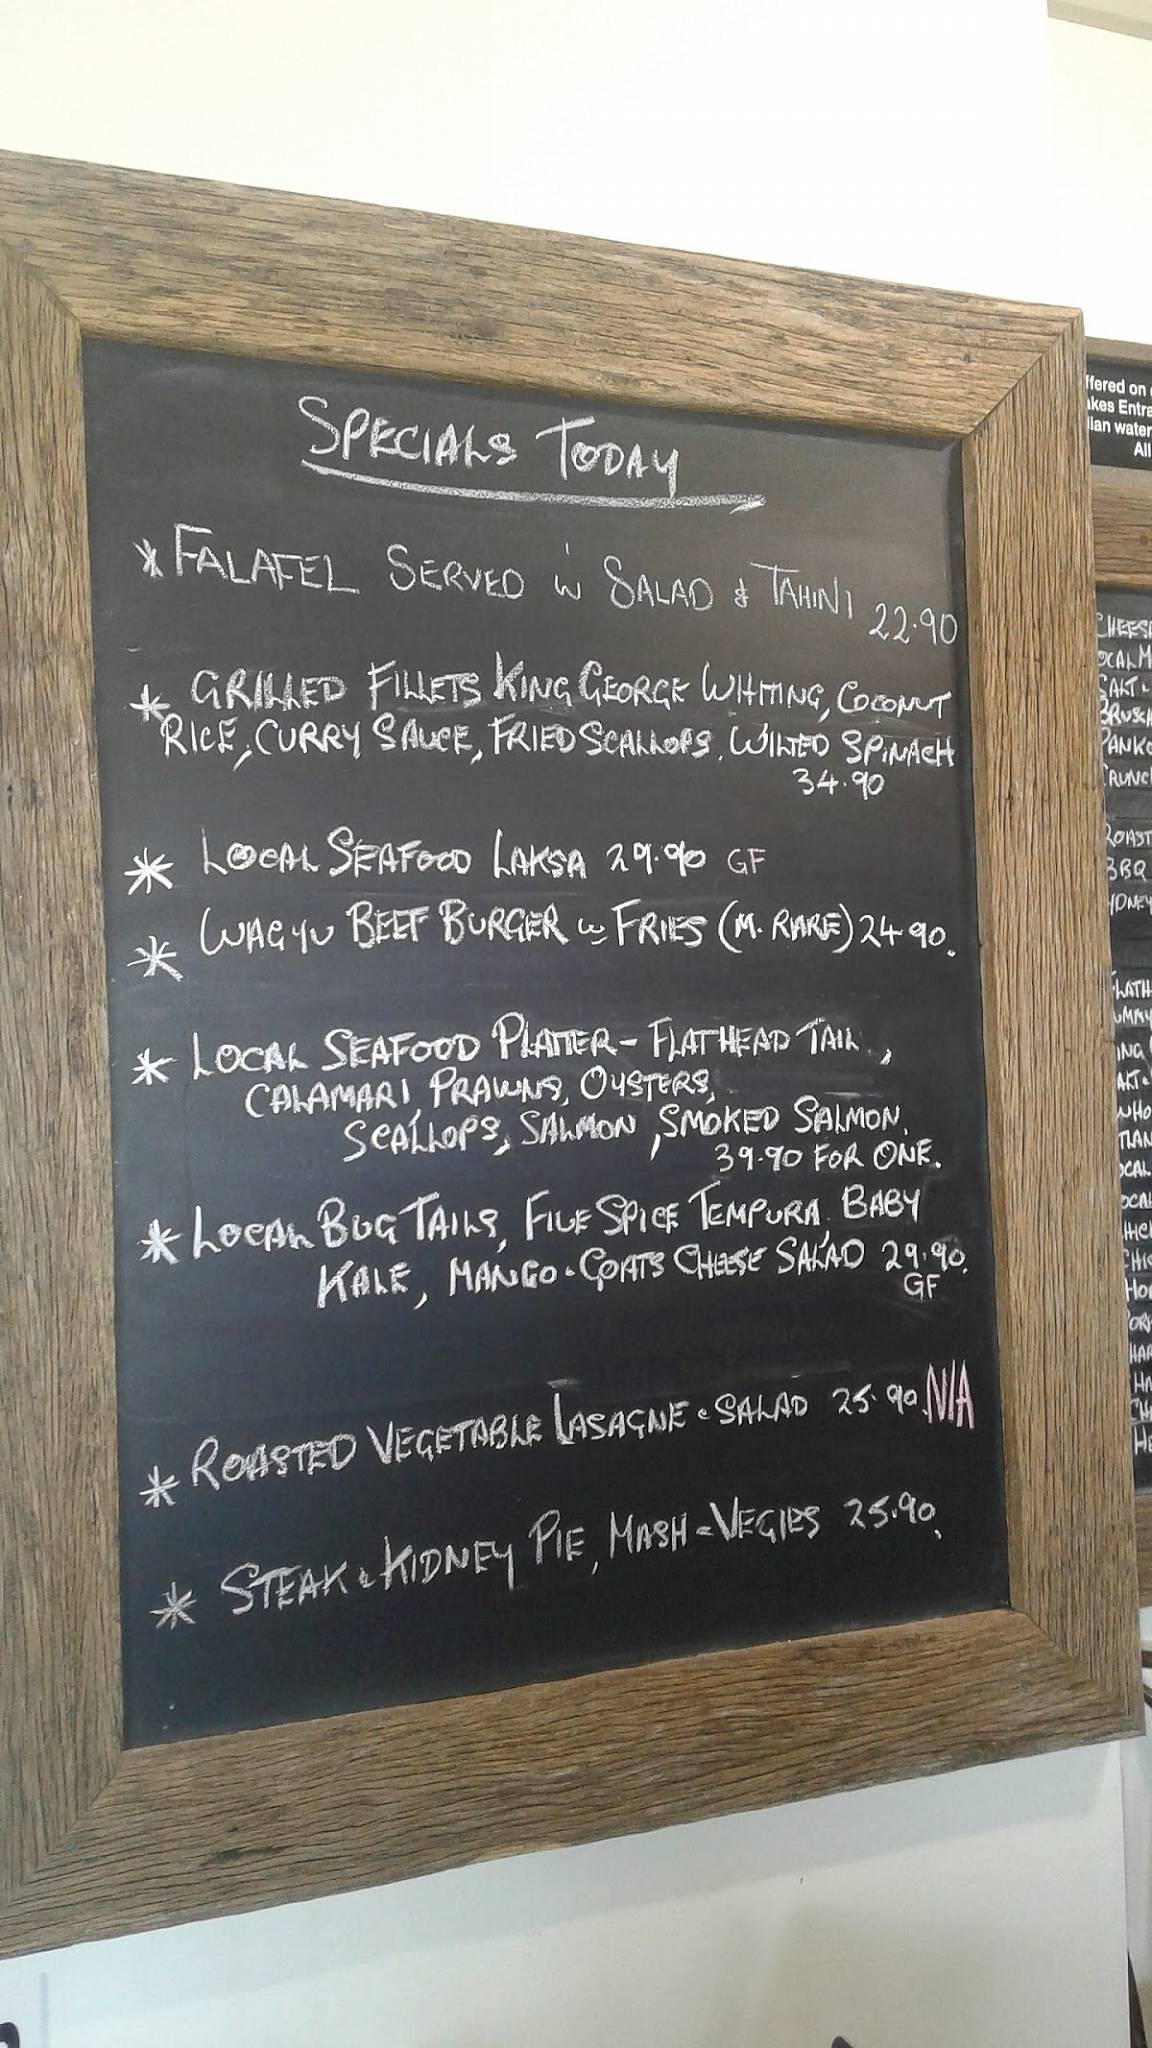 SPECIALS TODAY
* FALAFEL SERVED W SALAD & TAHINI 22.90
* GRILLED FILLETS KING GEORGE WHITING, COCONUT
RICE, CURRY SAUCE, FRIED SCALLOPS, WILTED SPINACH
34.90
* LOCAL SEAFOOD LAKSA 29.90 GF
* WAGYU BEEF BURGER W FRIES (M. RARE) 24.90.
* LOCAL SEAFOOD PLATTER - FLATHEAD TAIL,
CALAMARI, PRAWNS, OYSTERS,
SCALLOPS, SALMON, SMOKED SALMON.
39.90 FOR ONE.
* LOCAL BUG TAILS, FIVE SPICE TEMPURA, BABY
KALE, MANGO & GOATS CHEESE SALAD 29.90.
GF
* ROASTED VEGETABLE LASAGNE & SALAD 25.90 N/A
* STEAK & KIDNEY PIE, MASH & VEGIES 25.90.
ffered on
akes Entra
lian water
All
CHEESE
OCAL M
SALT
BRUSCH
PANKO
CRUNCH
ROAST
BBQ
YDNEY
FLATH